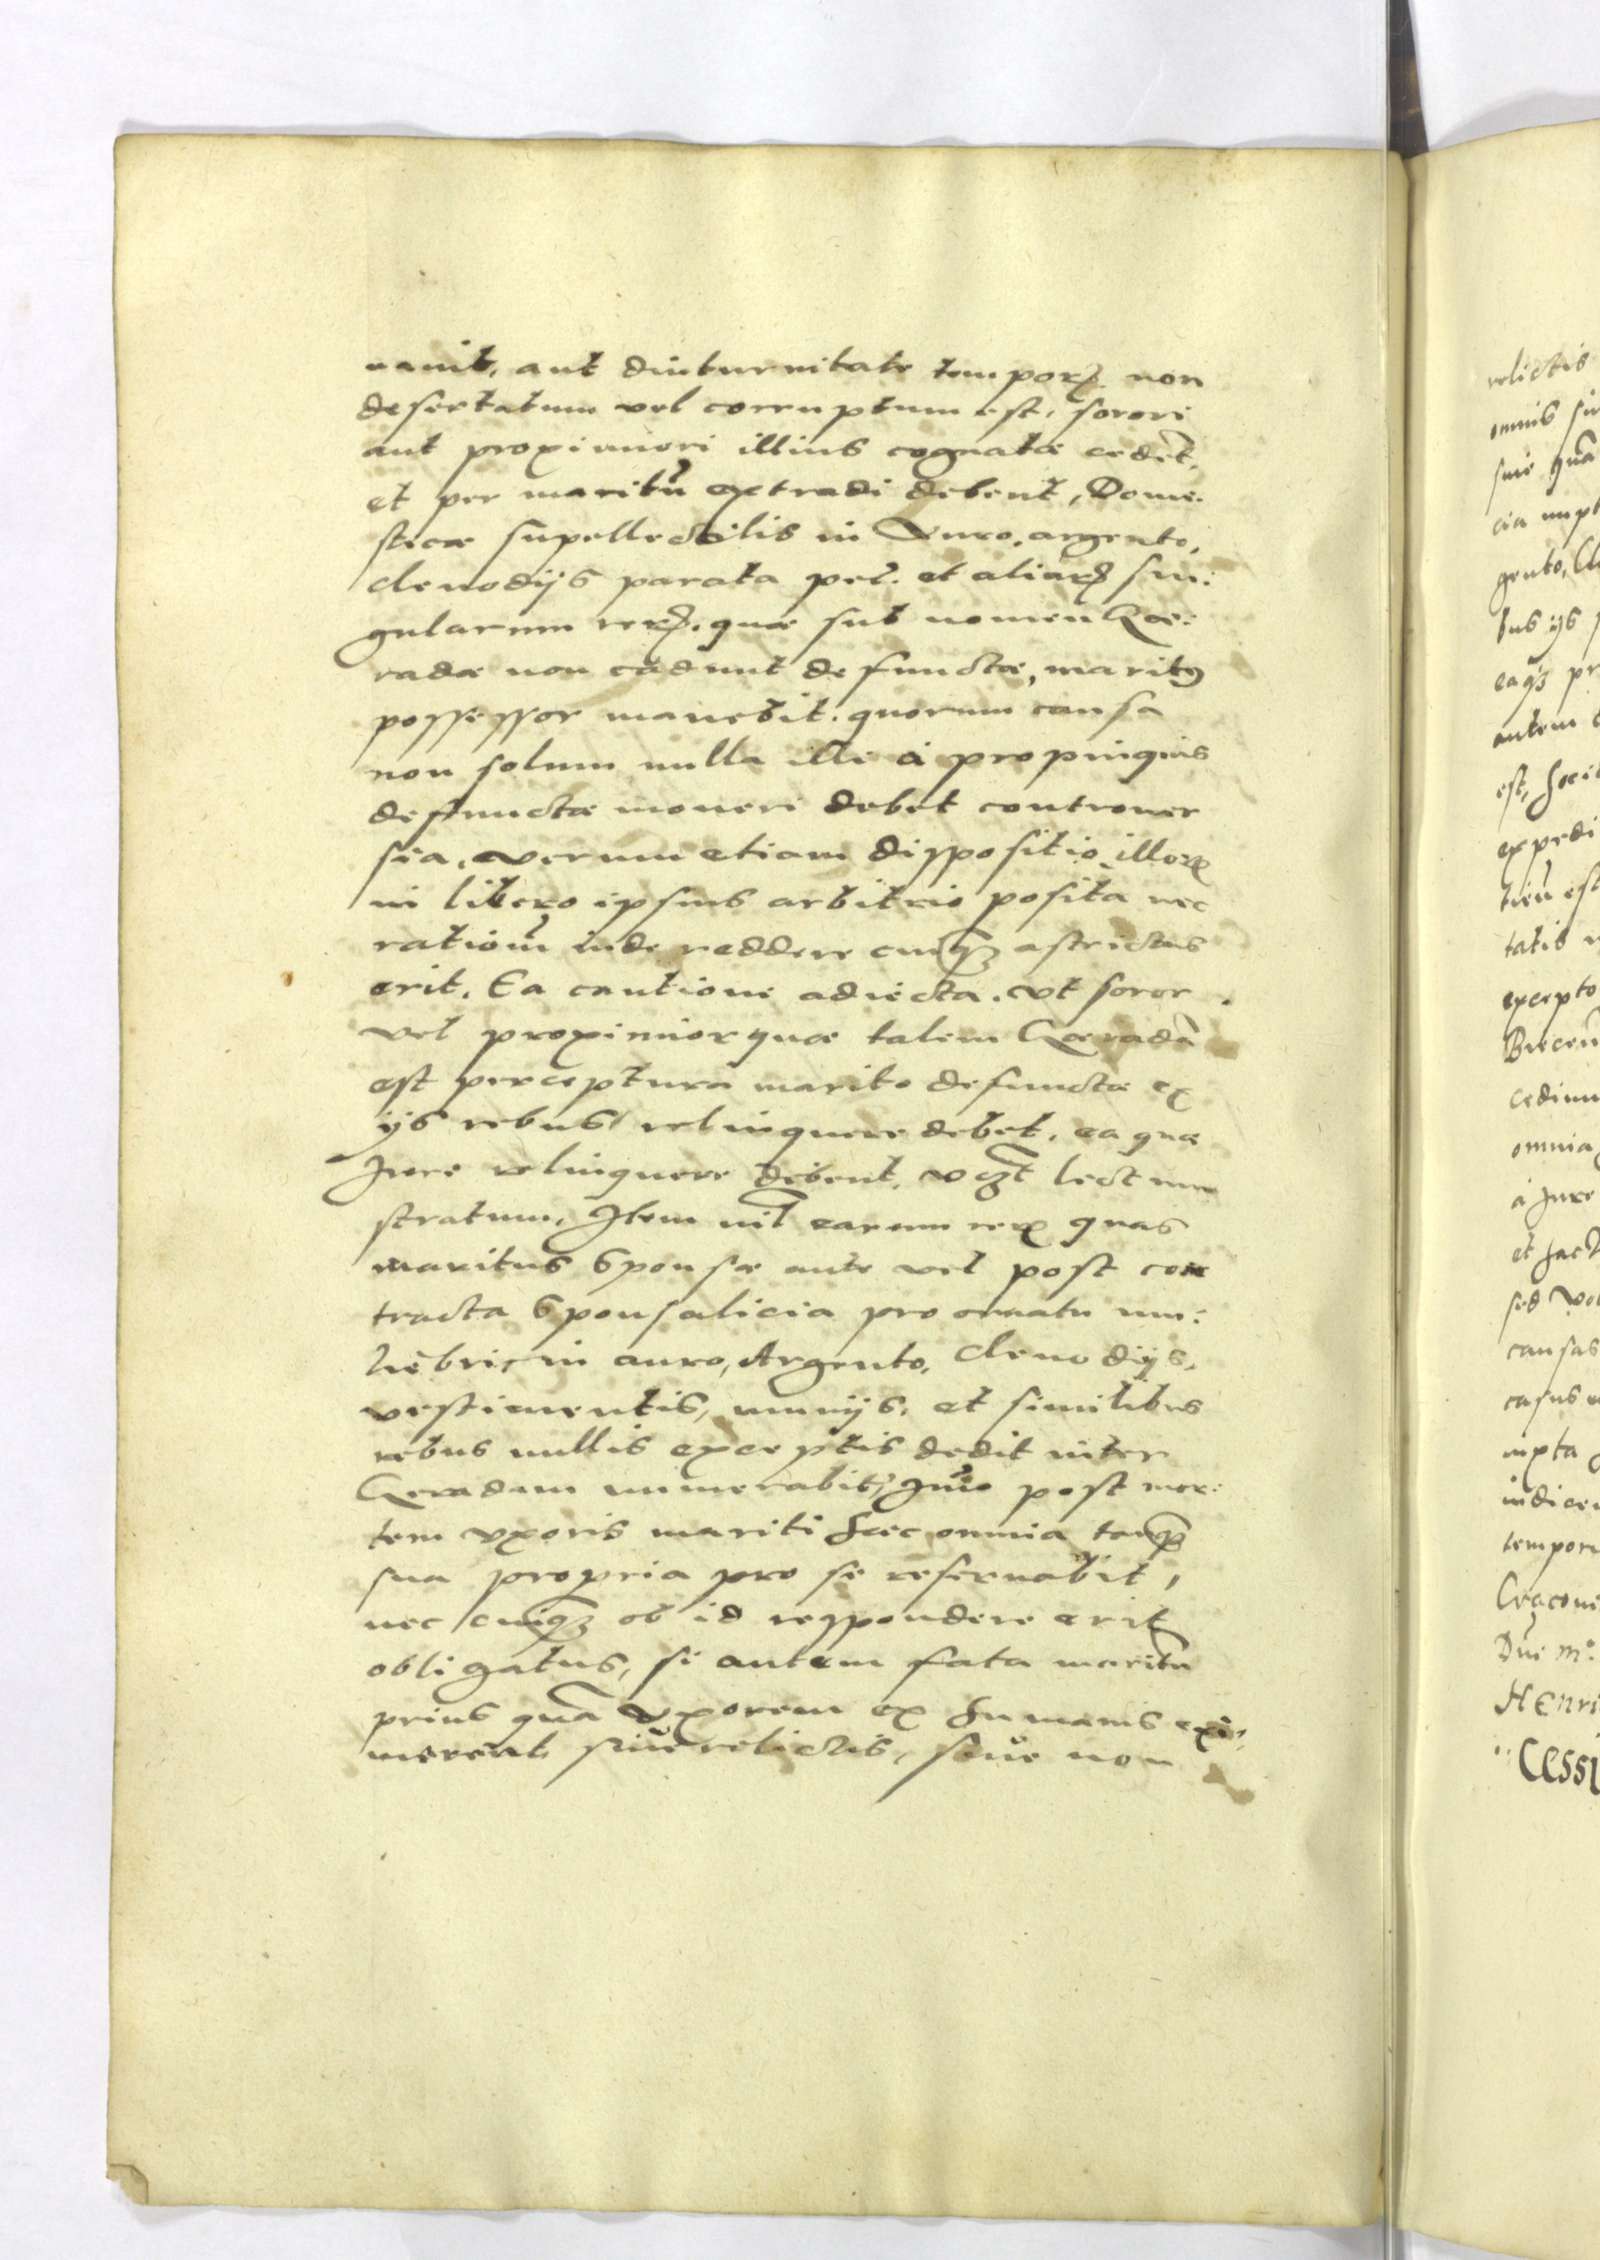 uauit, aut diuturnitate tempor? non
desertatum vel corruptum est, sorori
aut proximiori illius cognatæ cedet,
et per maritũ extradi debent, Dome.
sticæ supellectilis in Auro, argento,
clenodijs parata pec. et aliar? sin:
gularum rer?. quæ sub nomen Gæ:
radæ non cadunt defunctæ, marit9
possessor manebit. quorum causa
non solum nulla illi à propinquis
defunctæ moueri debet controuer
sia, verum etiam dispositio illor?
in libero ipsius arbitrio posita nec
rationẽ inde reddere cuiq3 astrictus
erit. Ea cautione adiecta. vt soror
vel proximior quæ talem Gæradã
est perceptura marito defunctæ ex
ijs rebus relinquere debet, ea quæ
Jure relinquere debent, lectum
stratum, Item nil earum rer? quas
maritus Sponsæ ante vel post con
tracta Sponsalicia pro ornatu mu:
liebri in auro, Argento, clenodijs,
vestimentis, et similibus
rebus nullis exceptis dedit inter
Geradam numerabit, Jmo post mor:
tem vxoris mariti hæc omnia tanq3
sua propria pro se reseruabit,
nec cuiq3 ob id respondere erit
obligatus, si autem fata maritũ
prius quã vxorem ex humanis exi:
merent siue relictis, siue non
relictis
omnis
siue quã
gento,
bus ijs
eaq3
autem
est,
expedi
est
tatis
excepto
omnia
à Jure
et
sed
causas
casus
Dñi m.
Henri
Cessi